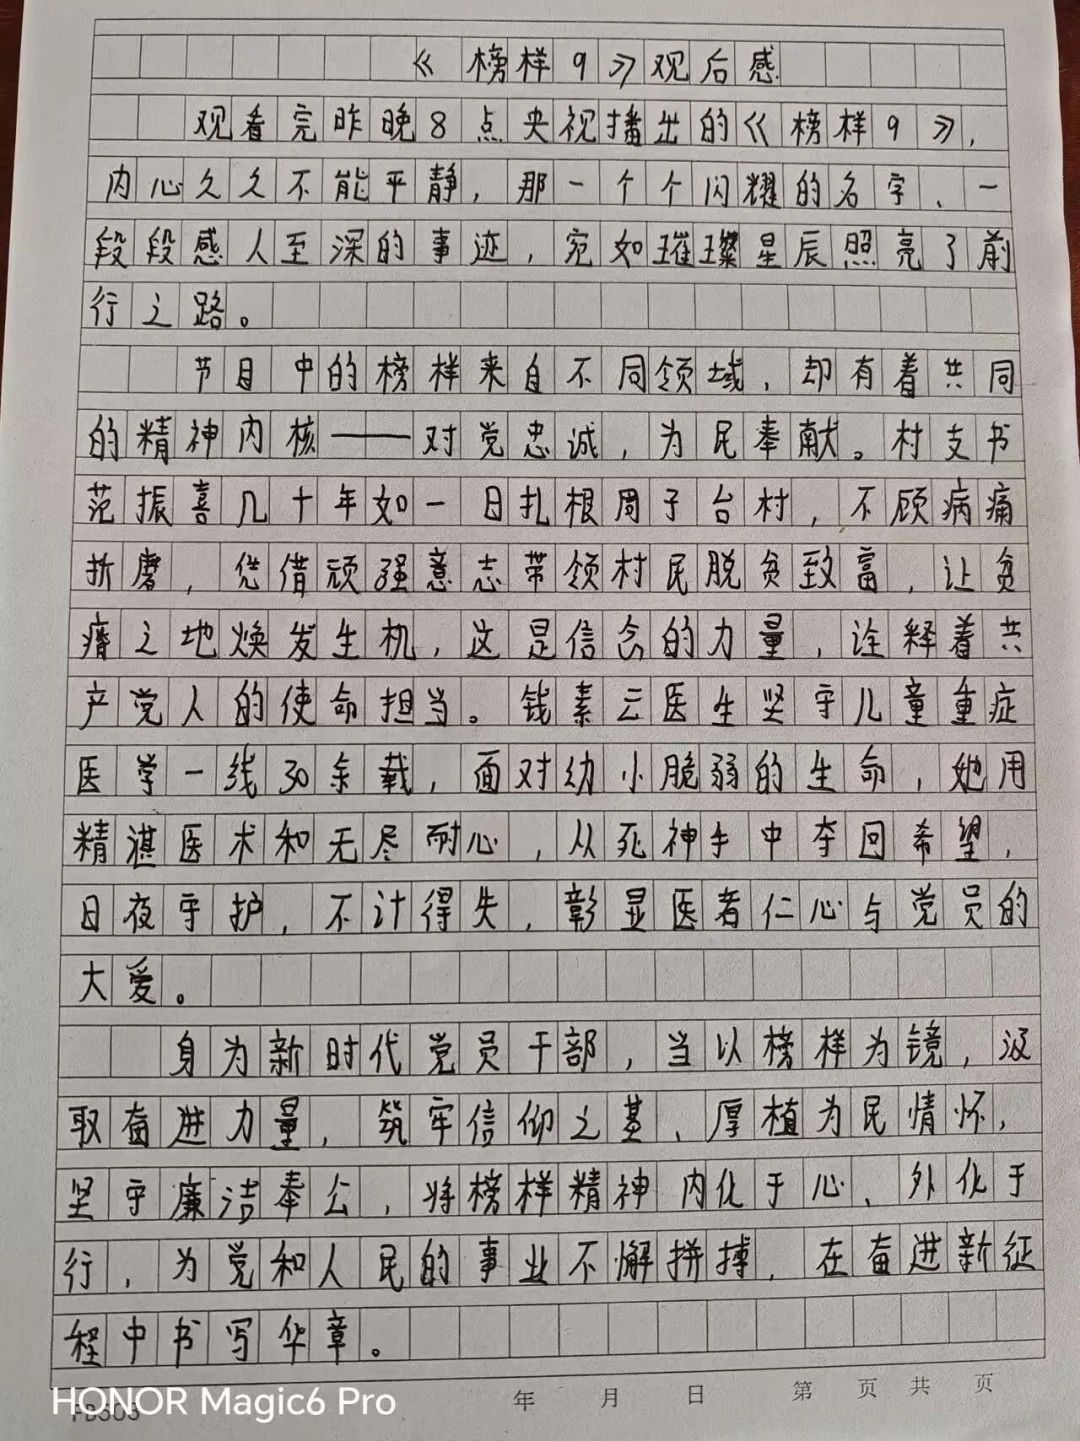 《榜样9》观后感
观看完昨晚8点央视播出的《榜样9》,
内心久久不能平静,那一个个闪耀的名字、一
段段感人至深的事迹,宛如璀璨星辰照亮了前
行之路。
节目中的榜样来自不同领域,却有着共同
的精神内核——对党忠诚,为民奉献。村支书
范振喜几十年如一日扎根周子台村,不顾病痛
折磨,凭借顽强意志带领村民脱贫致富,让贫
瘠之地焕发生机,这是信念的力量,诠释着共
产党人的使命担当。钱素云医生坚守儿童重症
医学一线30余载,面对幼小脆弱的生命,她用
精湛医术和无尽耐心,从死神手中夺回希望,
日夜守护,不计得失,彰显医者仁心与党员的
大爱。
身为新时代党员干部,当以榜样为镜,汲
取奋进力量,筑牢信仰之基、厚植为民情怀,
坚守廉洁奉公,将榜样精神内化于心、外化于
行,为党和人民的事业不懈拼搏,在奋进新征
程中书写华章。
年 月 日 第 页 共 页
HONOR Magic6 Pro